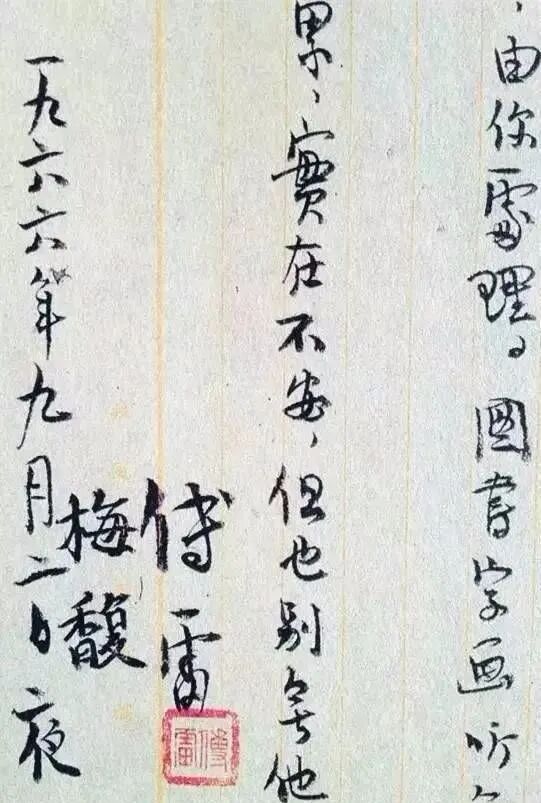 ，由你處理。圖書字画听
累，實在不安，但也别無他
傅雷
傅雷
梅馥
一九六六年九月二日夜